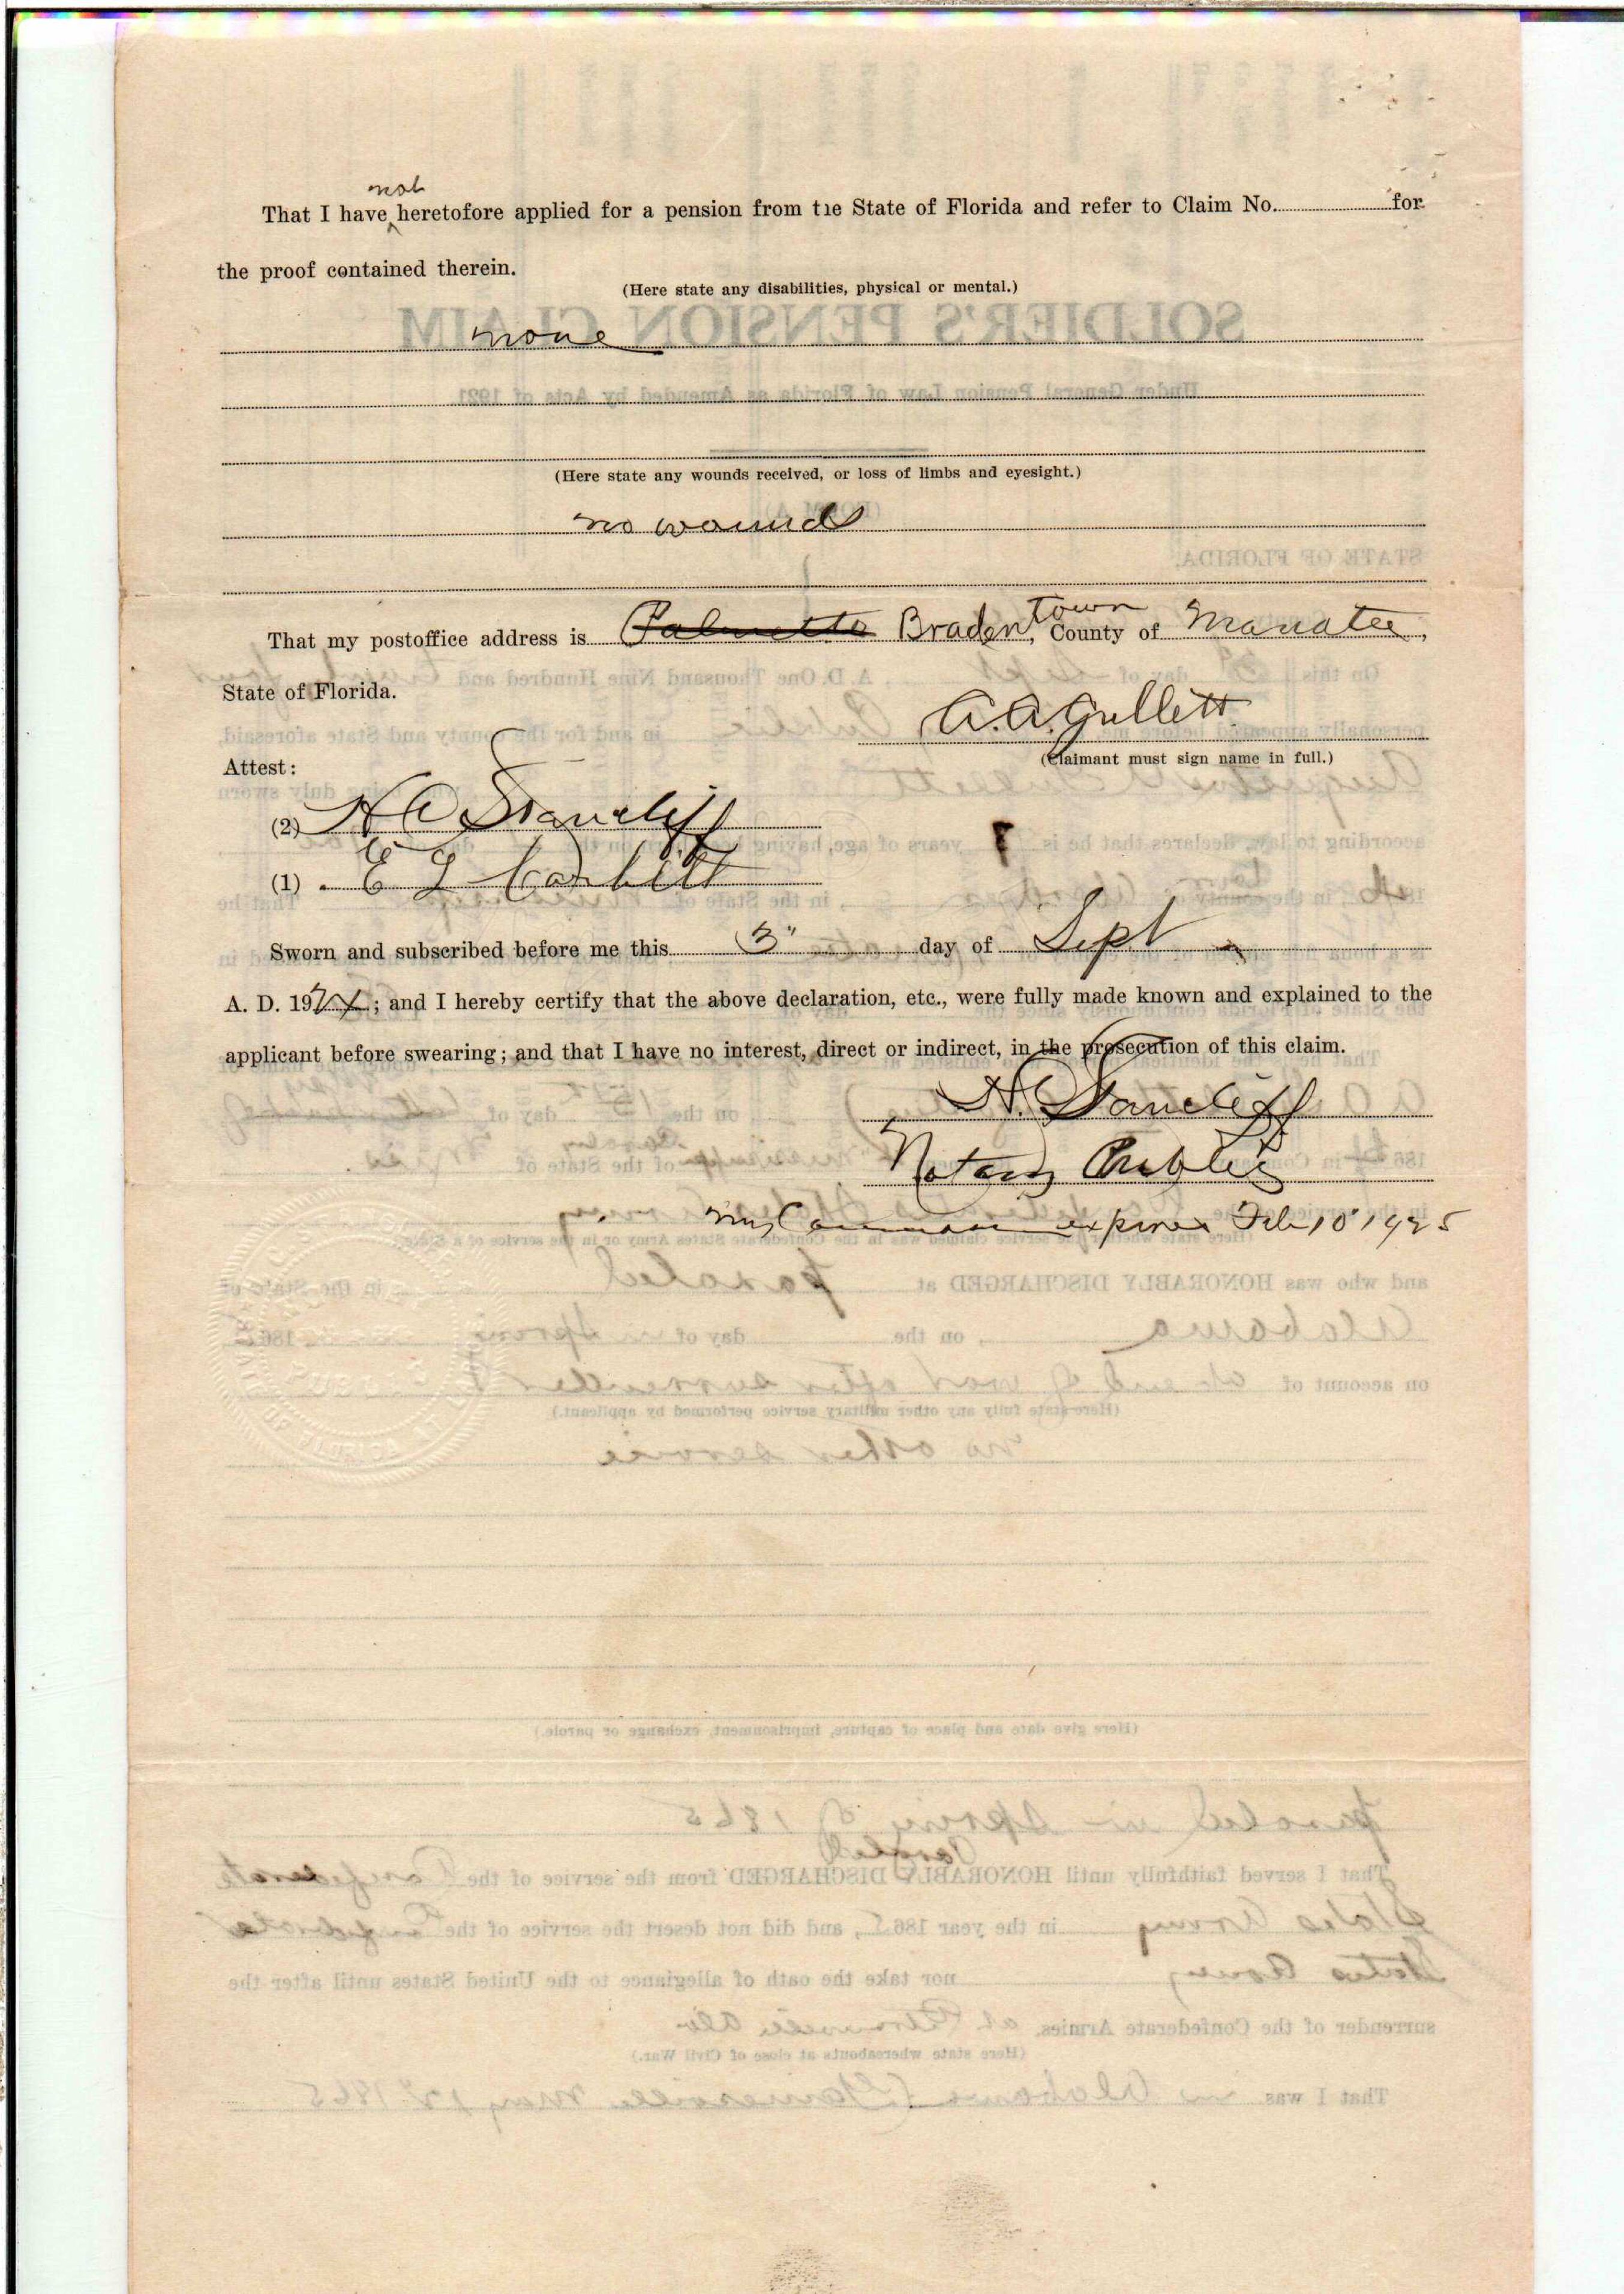 not
That I have heretofore applied for a pension from tie State of Florida and refer to Claim No. for
the proof contained therein.
(Here state any disabilities, physical or mental.)
none
(Here state any wounds received, or loss of limbs and eyesight.)
no wounds
That my postoffice address is Palmetto Braden town, County of Manatee,
State of Florida.
A. A. Gullett
(Claimant must sign name in full.)
Attest:
(2) H C Stancliff
(1) E L Corbitt
Sworn and subscribed before me this 3" day of Sept
A. D. 1924; and I hereby certify that the above declaration, etc., were fully made known and explained to the
applicant before swearing; and that I have no interest, direct or indirect, in the prosecution of this claim.
H. C Stancliff
Notary Public
My Commission expires Feb 10" 1925